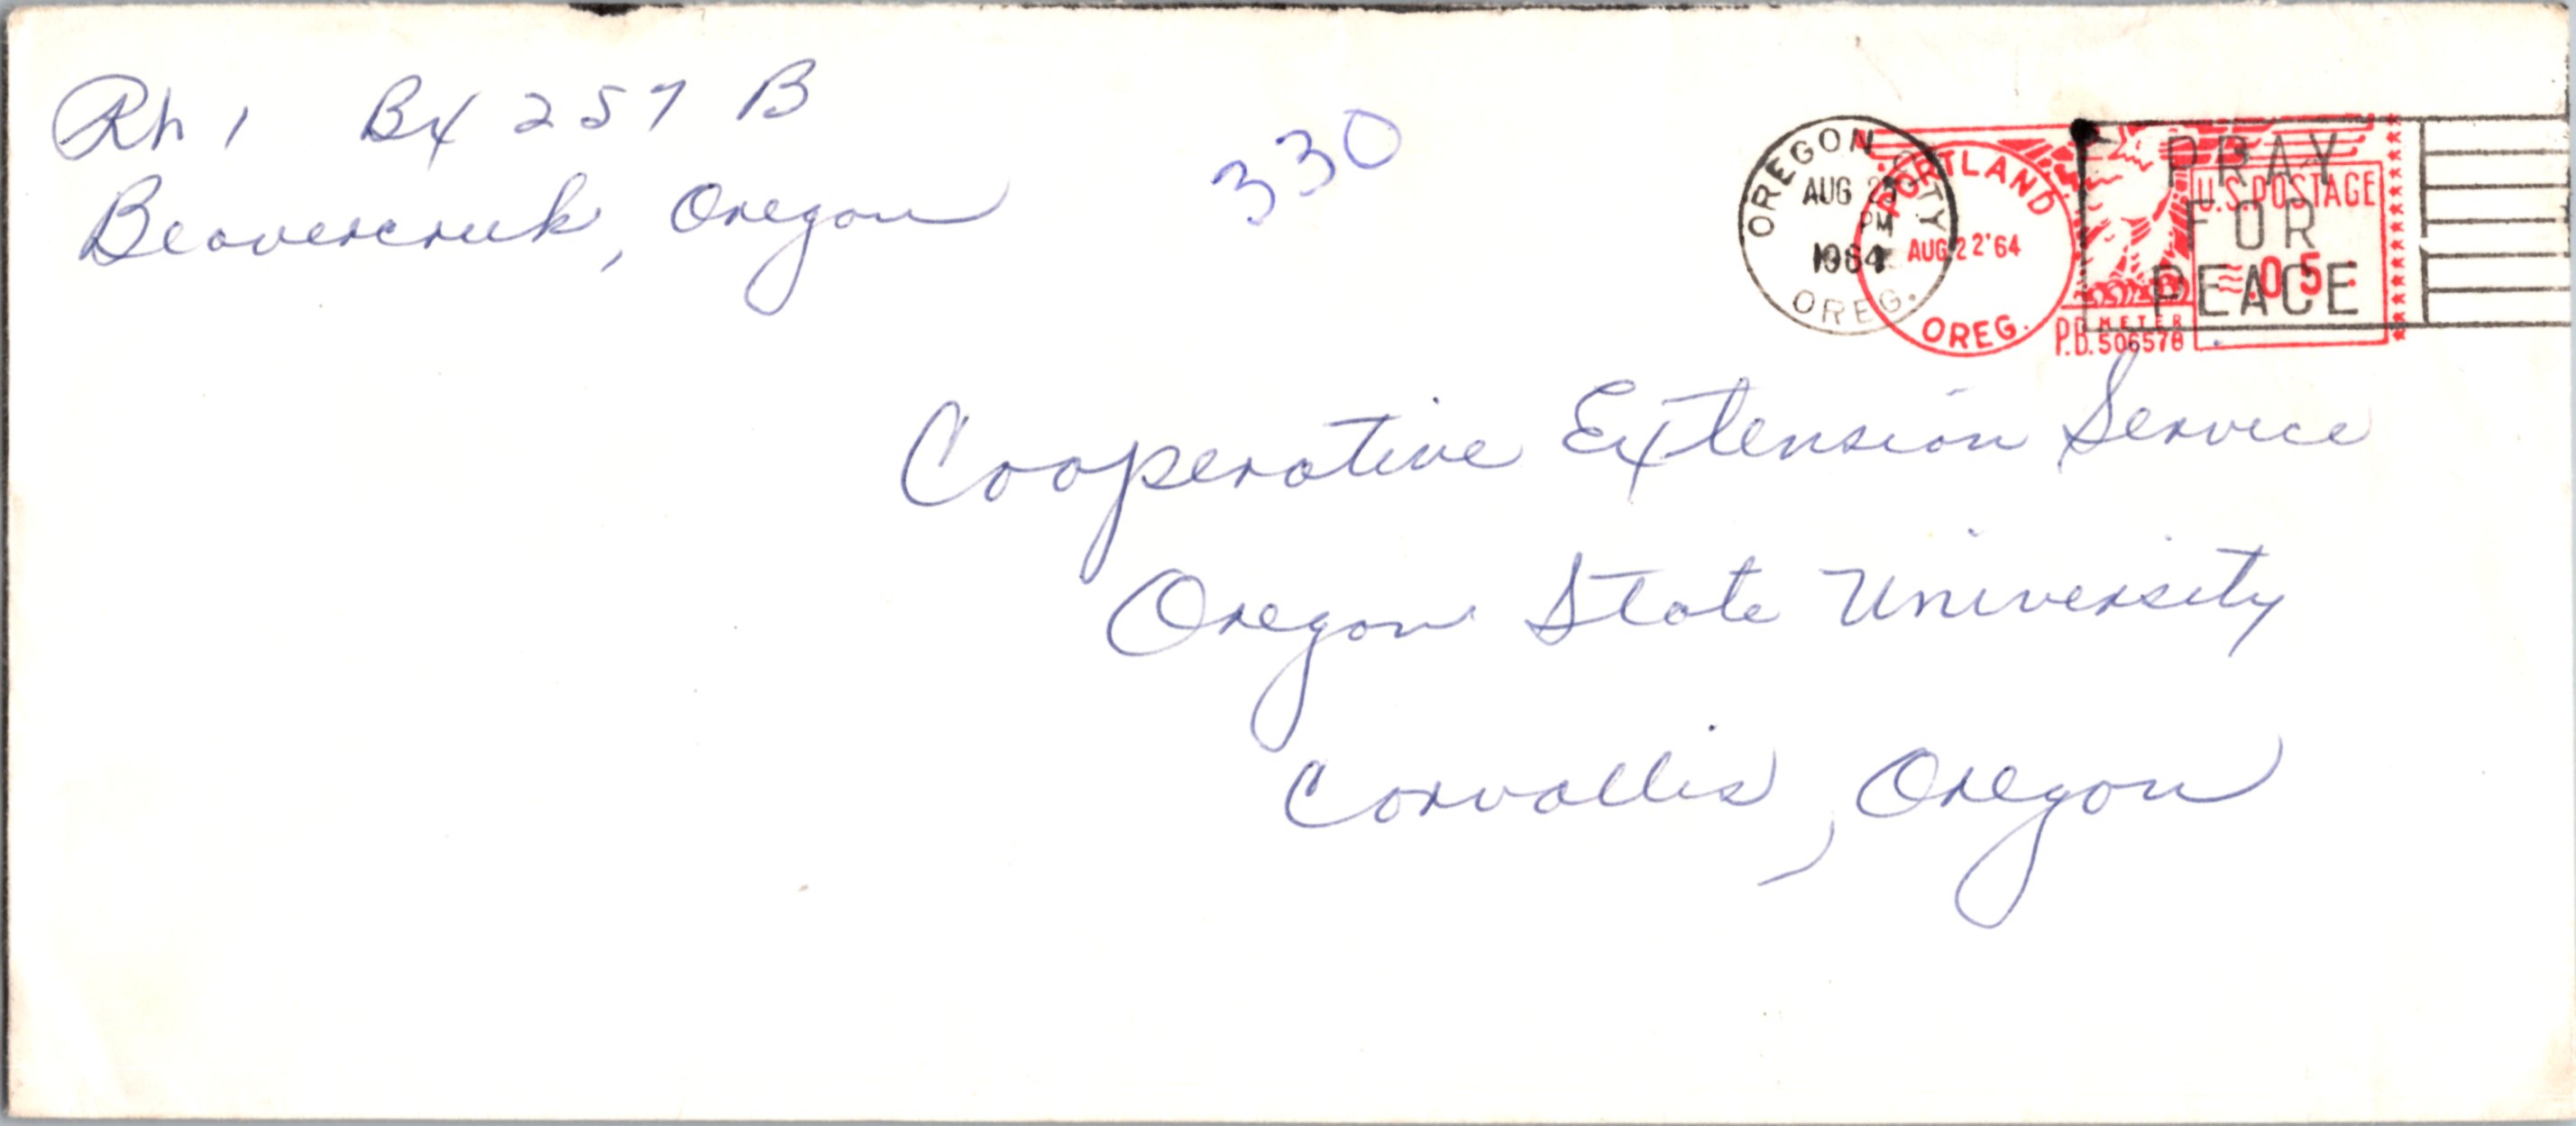 Rt 1 Bx 257 B
Beavercreek, Oregon
330
OREGON CITY
AUG 25
PM
1964
OREG.
PORTLAND
AUG 22 '64
OREG.
U.S. POSTAGE
.05
P.B. METER
506578
PRAY
FOR
PEACE
Cooperative Extension Service
Oregon State University
Corvallis, Oregon